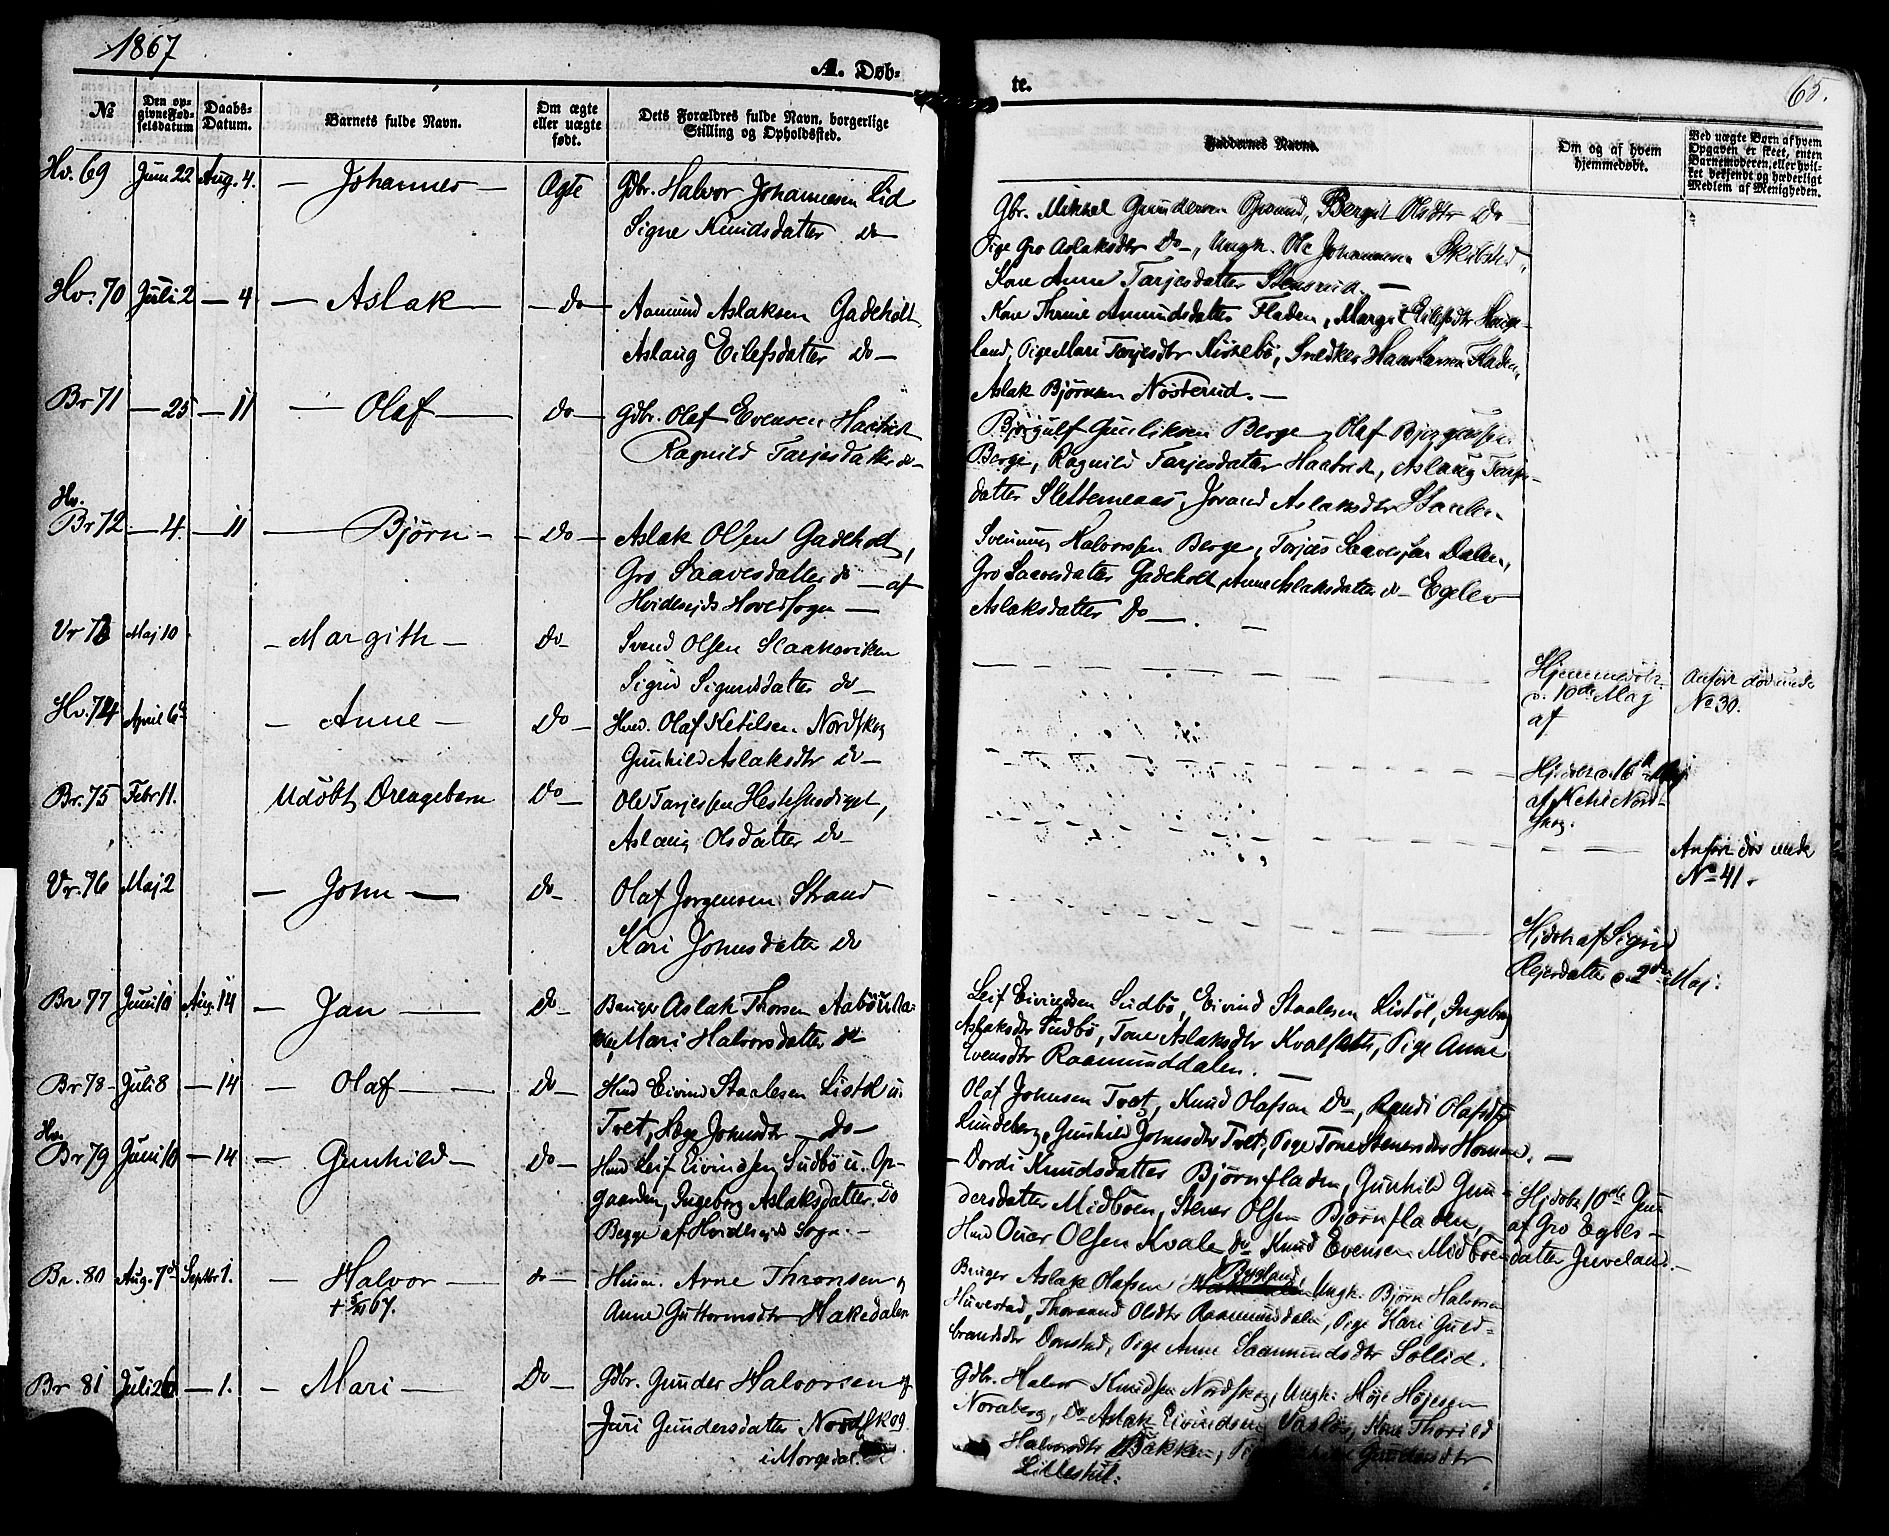 1867
A. Døb-
te.
65.
№
Den op-
givne Fød-
selsdatum
Daabs-
Datum.
Barnets fulde Navn.
Om ægte
eller uægte
født.
Dets Forældres fulde Navn, borgerlige
Stilling og Opholdssted.
Faddernes Navne.
Om og af hvem
hjemmedøbt.
Ved uægte Børn af hvem
Opgaven er skeet, enten
Barnemoderen, eller hvil-
ket bekjendt og hæderligt
Medlem af Menigheden.
Hv. 69 Juni 22 Aug. 4. — Johannes — Ægte Gdbr. Halvor Johannesen Lid
Signe Knudsdatter do —
Gbr. Mikkel Gundersen Opsund, Bergit Olsdtr Do
Pige Gro Aslaksdtr Do —, Ungk. Ole Johannesen
Kone Anne Tarjesdatter —
Hv. 70 Juli 2 — 4 — Aslak — Do — Aamund Aslaksen Gadeholt
Aslaug Eilefsdatter do —
Kone Thrine Amundsdatter Fladen, Margit Eilefsdtr Hauge-
land, Pige Mari Tarjesdtr Kistebö, Snedker Fladen,
Aslak Björnsen Nösterud. —
Br 71 — 25 — 11 — Olaf — Do — Gdbr. Olaf Evensen Haatveit
Ragnild Tarjesdatter do —
Björgulf Gunliksen Berge, Olaf
Berge, Ragnild Tarjesdatter Haatveit, Aslaug Tarjes-
datter Slettemeaas, Jorand Aslaksdtr
Hv.
Br 72 — 4. — 11 — Bjørn — Do — Aslak Olsen Gadeholt,
Gro Saavesdatter do — af
Hvideseids Hovedsogn —
Halvorssen Berge, Tarjes Saavesen Dalen,
Gro Saavesdatter Gadeholt, Anne Aslaksdatter do — Egelev
Aslaksdatter do —. —
Vr 73 Maj 10 — Margith — Do — Svend Olsen Slaakaviken
Sigrid Sigurdsdatter do —
Hjemmedøbt
d. 10de Maj
af
Anført død under
No 30.
Hv. 74 April 6te — Anne — Do — Hmd. Olaf Ketilsen Nordskog
Gunhild Aslaksdtr do —
Hjdøbt d. 16de Maj
af Ketil Nord-
skog.
Br. 75 Febr 11. Udöbt Drengebarn Do — Ole Tarjessen
Aslaug Olsdatter Do —
Anført død under
No 41.
Vr. 76 Maj 2 — John — Do — Olaf Jorgensen Strand
Kari Johnsdatter Do
Hjdöbt af Sigrid
Rejersdatter d. 2den Maj.
Br 77 Juni 10 Aug. 14 — Jan — Do — Bruger Aslak Thorsen
Mari Halvorsdatter do
Leif Eivindsen Sudbö, Eivind Staalesen Listöl, Ingeborg
Aslaksdtr Sudbö, Tone Aslaksdtr Kvalsloth, Pige Anne
Evensdtr Raamunddalen. —
Br 78 Juli 8 — 14 — Olaf — Do — Hmd Eivind Staalesen Listöl u.
Tvet, Hæge Johnsdtr — do —
Olaf Johnsen Tvet, Knud Olafsen Do —, Randi Olafsdtr
Lundeberg, Gunhild Johnsdtr Tvet, Pige Tone Stenersdtr
Hv.
Br 79 Juni 10 — 14 — Gunhild — Do — Hmd Leif Eivindsen Sudbö u. Op-
gaarden, Ingeborg Aslaksdatter. Do
Begge af Hvideseid Sogn. —
— Dordi Knudsdatter Bjørnfladen, Gunhild Gun-
dersdatter Midböen, Stener Olsen Bjørnfladen,
Hmd Olsen Kvale, do Knud Evensen Midböen
Hjdöbt 10de Juni
af Gro Egels-
datter Juveland. —
Br. 80 Aug. 7de Septbr 1. — Halvor — do — Husm. Arne Thronsen og
Anne Guttormsdtr Hakedalen
+ 67.
Bruger Aslak Olafsen Bygland, Ungk. Björn Halvorsen
Huvestad, Thorand Olsdtr Raamunddalen, Pige Kari Guld-
brandsdtr Donstad, Pige Anne Saamundsdtr Sollid.
Br 81 Juli 26 — 1. — Mari — Do — Gdbr. Gunder Halvorsen og
Juri Gundersdatter Nordskog
i Morgedal.
Gdbr. Halvor Knudsen Nordskog, Ungk. Höje Höjesen
Noraberg, Do Aslak Eivindsen Vaslös, Kone Thorild
Halvorsdtr Bakken, Gundersdtr
Lilleskut.